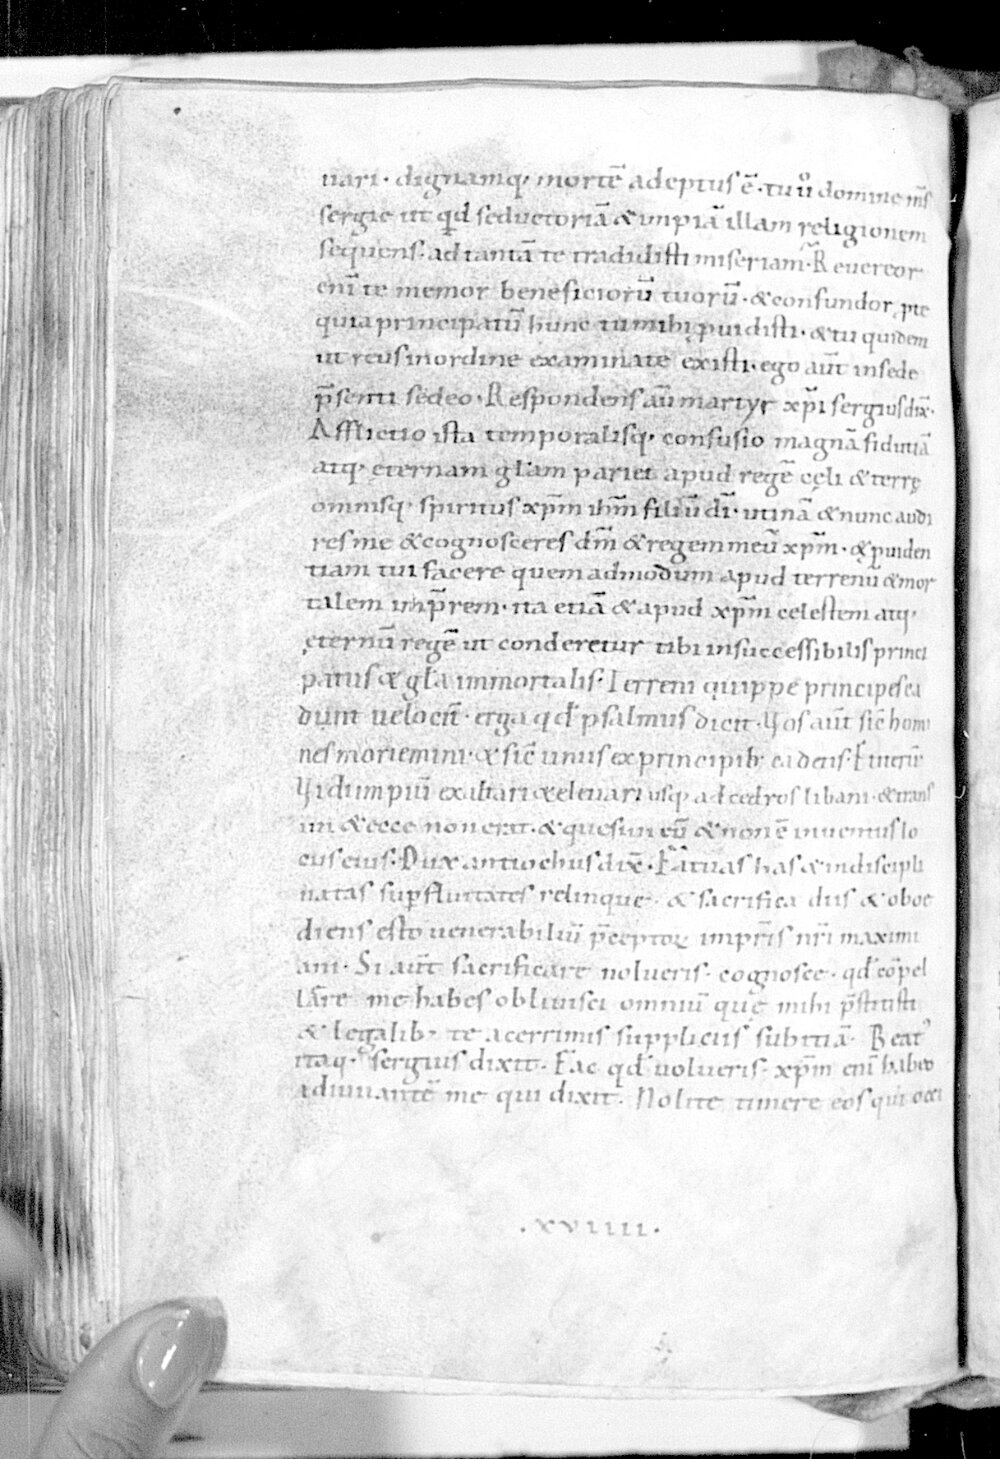 uari · dignamq; mortē adeptus ē · tu ů domine m̄s
sergie ut qd seductoriā & impiā illam religionem
sequens · ad tantā te tradidisti miseriam · Reuereor
enī te memor beneficiorū tuorū · & confundor ꝓ te
quia principatū hunc tu mihi ꝓuidisti · & tu quidem
ut reus in ordine examinate existi · ego aūt in sede
p̄senti sedeo · Respondens aū martyr xp̄i sergius dix̄ ·
Afflictio ista temporalisq; confusio magnā fiduciā
atq; ęternam gl̄am pariet apud regē cęli & terrę
omnisq; spiritus xp̄m ih̄m filiū dī · utinā & nunc audi
res me & cognosceres dm̄ & regem meū xp̄m · & ꝓuiden
tiam tui facere quemadmodum apud terrenū & mor
talem imp̄rem · ita etiā & apud xp̄m celestem atq;
ęternū regē ut conderetur tibi insuccessibilis princi
patus & gl̄a immortalis · Terreni quippe principes ca
dunt uelocit̄ · erga qd̄ psalmus dicit · Vos aūt sic̄ homi
nes moriemini · & sic̄ unus ex principib; cadens · Et iterū
Vidi impiū exaltari & eleuari usq; ad cedros libani · & trans
iui & ecce non erat · & quesiui eū & non ē inuentus lo
cus eius · Dux antiochus dix̄ · Fatuas has & indiscipli
natas supfluitates relinque · & sacrifica diis & oboe
diens esto uenerabiliū p̄ceptoꝝ imp̄ris nr̄i maximi
ani · Si aūt sacrificare nolueris · cognosce · qd̄ cōpel
lāre me habes obliuisci omniū quę mihi p̄stitisti
& legalib; te acerrimis suppliciis subitiā · Beat᾿
itaq; sergius dixit · Fac qd̄ uolueris · xp̄m enī habeo
adiuuantē me qui dixit · Nolite timere eos qui occi
· xviiii ·